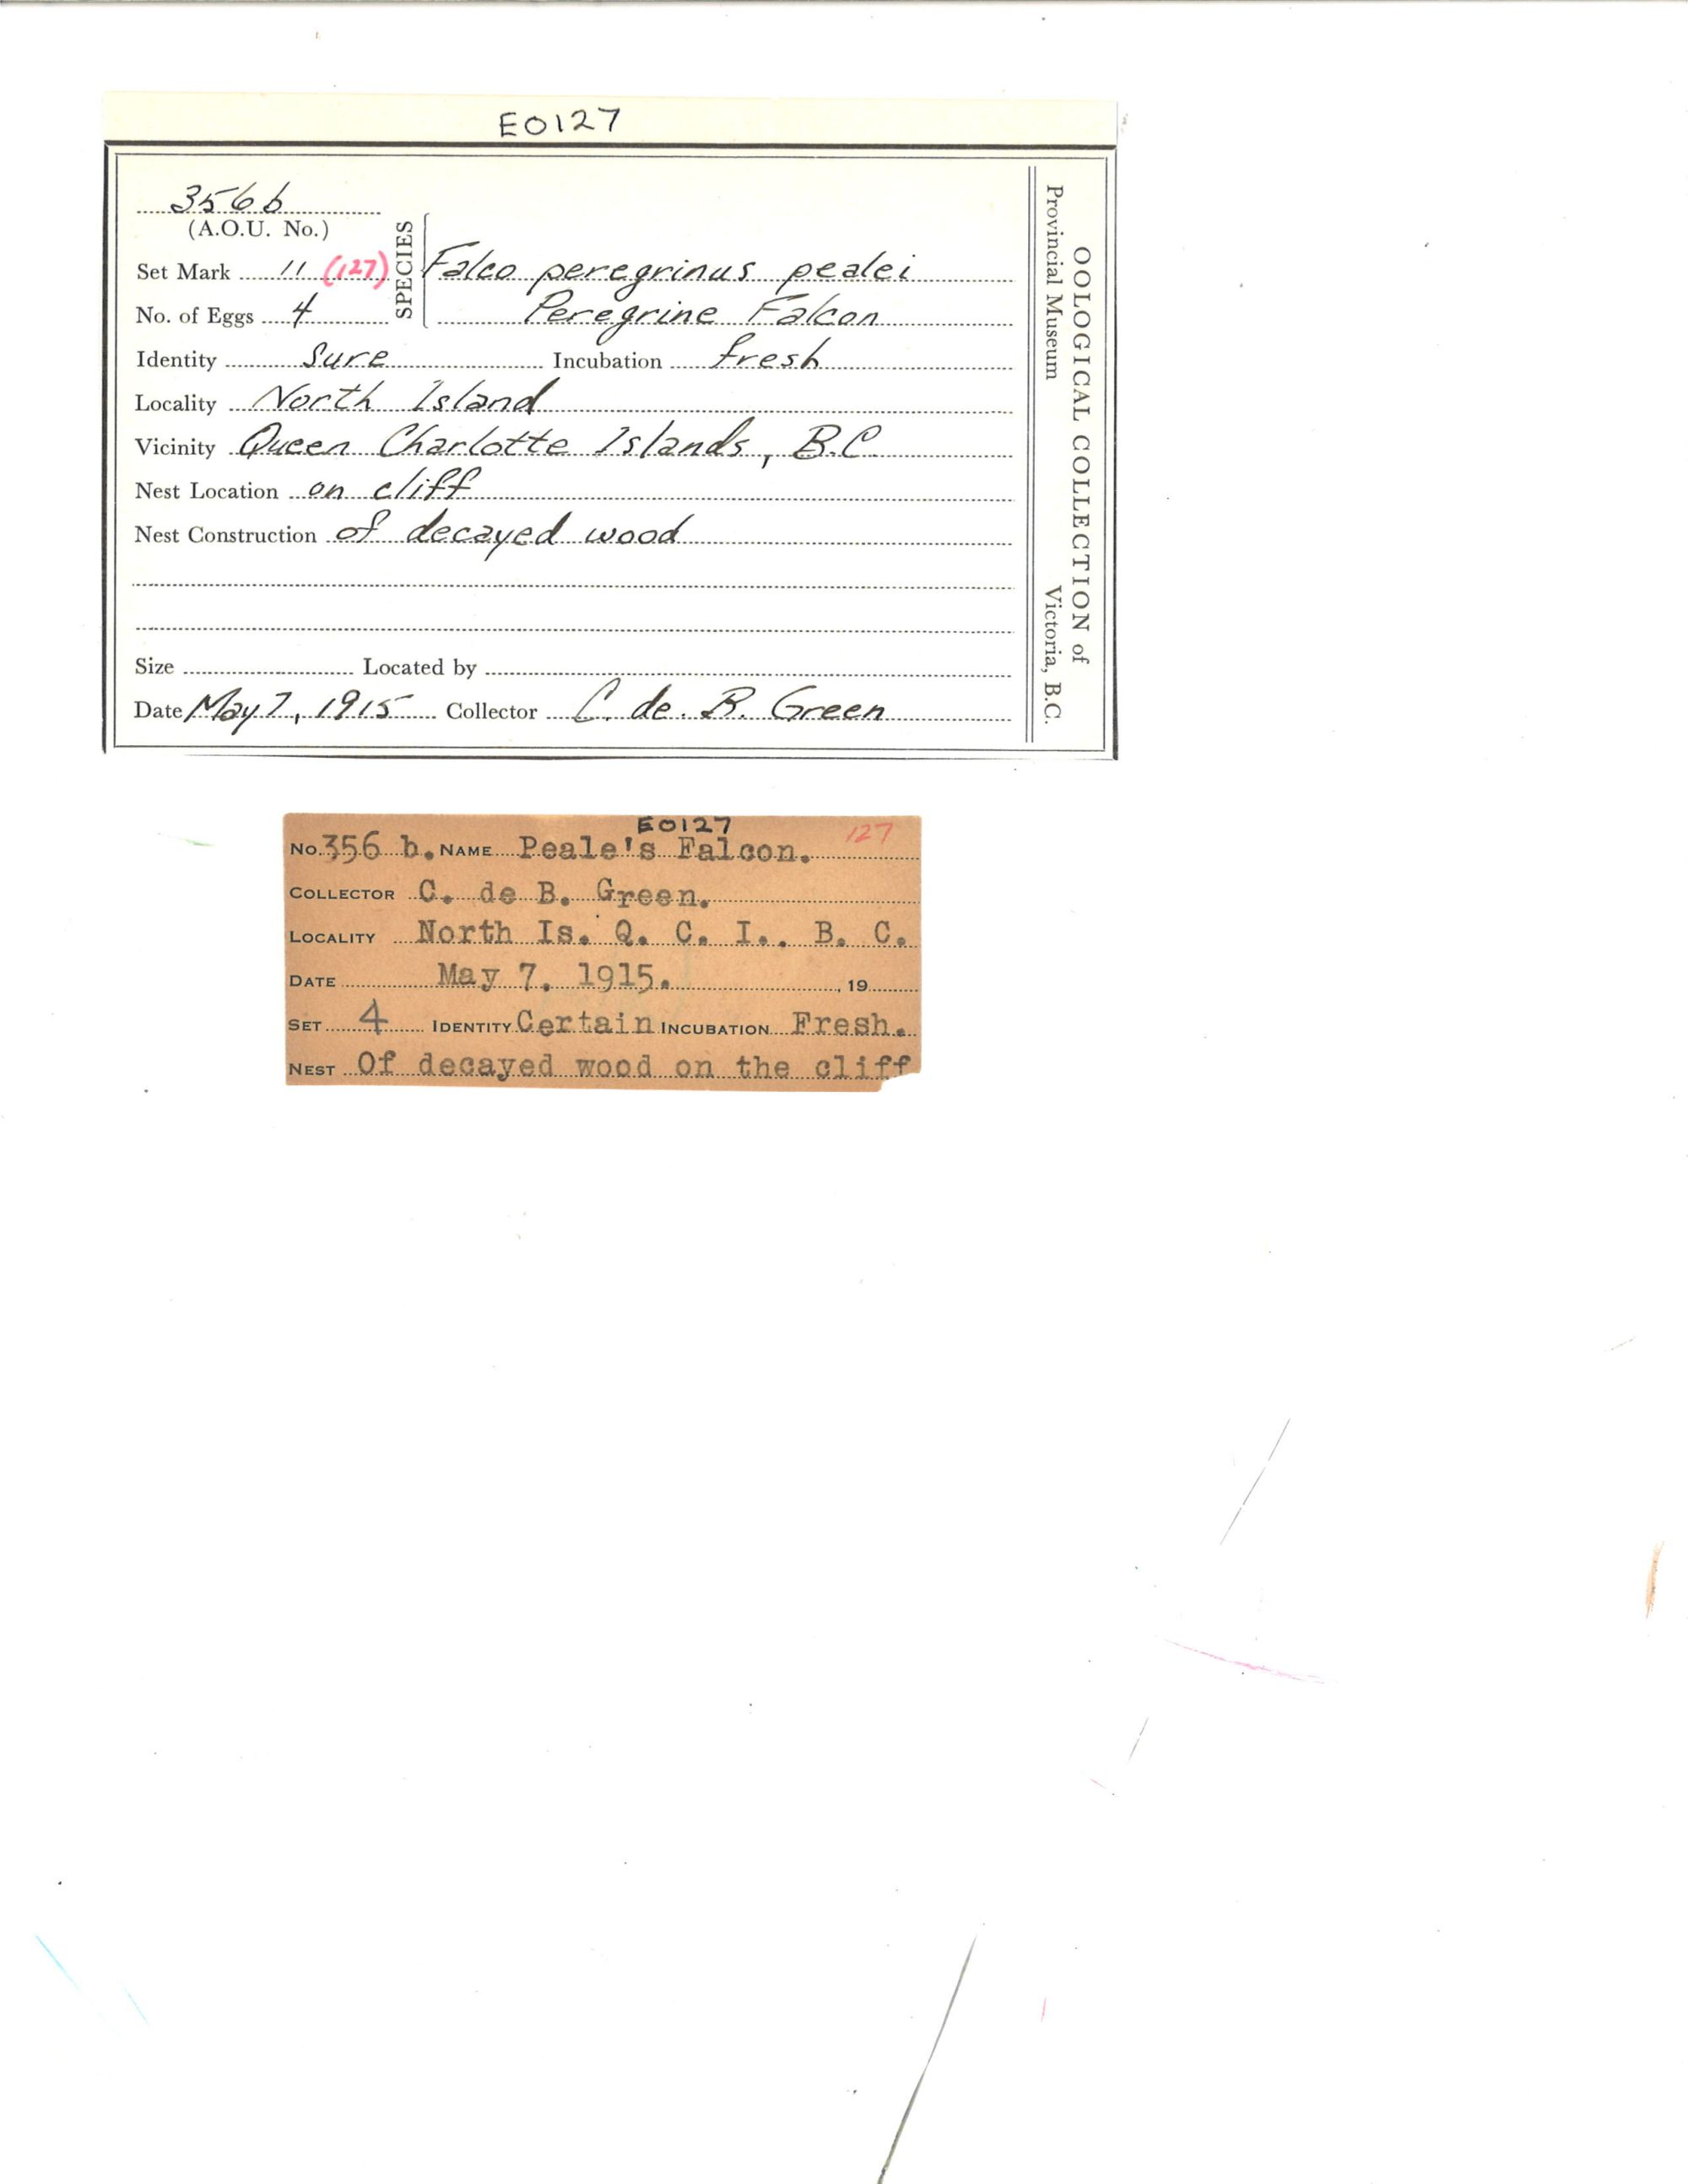 E0127
356b
(A.O.U. No.)
Set Mark 11 (127)
No. of Eggs 4
SPECIES
Falco peregrinus pealei
Peregrine Falcon
Identity Sure Incubation fresh
Locality North Island
Vicinity Queen Charlotte Islands, B.C.
Nest Location on cliff
Nest Construction of decayed wood
Size Located by
Date May 7, 1915 Collector C. de. B. Green
OOLOGICAL COLLECTION of
Provincial Museum Victoria, B.C.
E0127 127
No. 356 b. NAME Peale's Falcon.
COLLECTOR C. de B. Green.
LOCALITY North Is. Q. C. I.. B. C.
DATE May 7. 1915. , 19
SET 4 IDENTITY Certain INCUBATION Fresh.
NEST Of decayed wood on the cliff